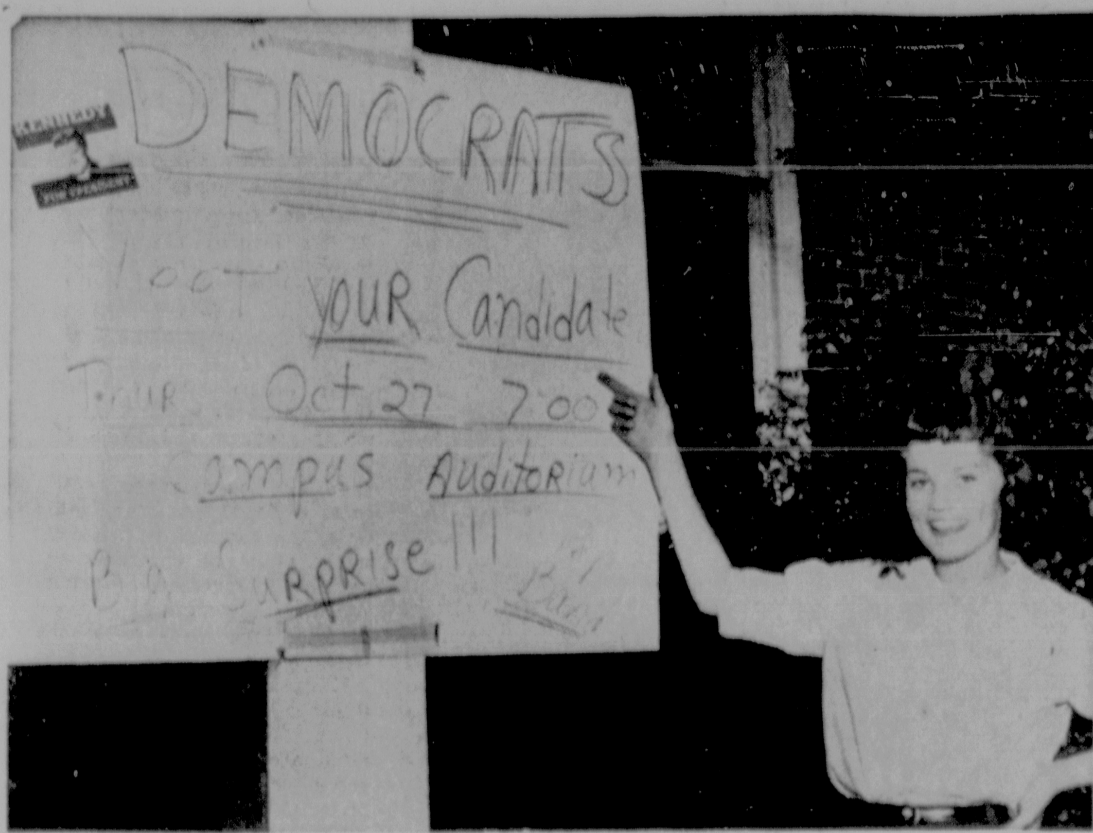 KENNEDY
FOR PRESIDENT
DEMOCRATS
YOUR Candidate
THUR Oct 27 7:00
ampus AuditoRium
Big SuRPRISe !!!